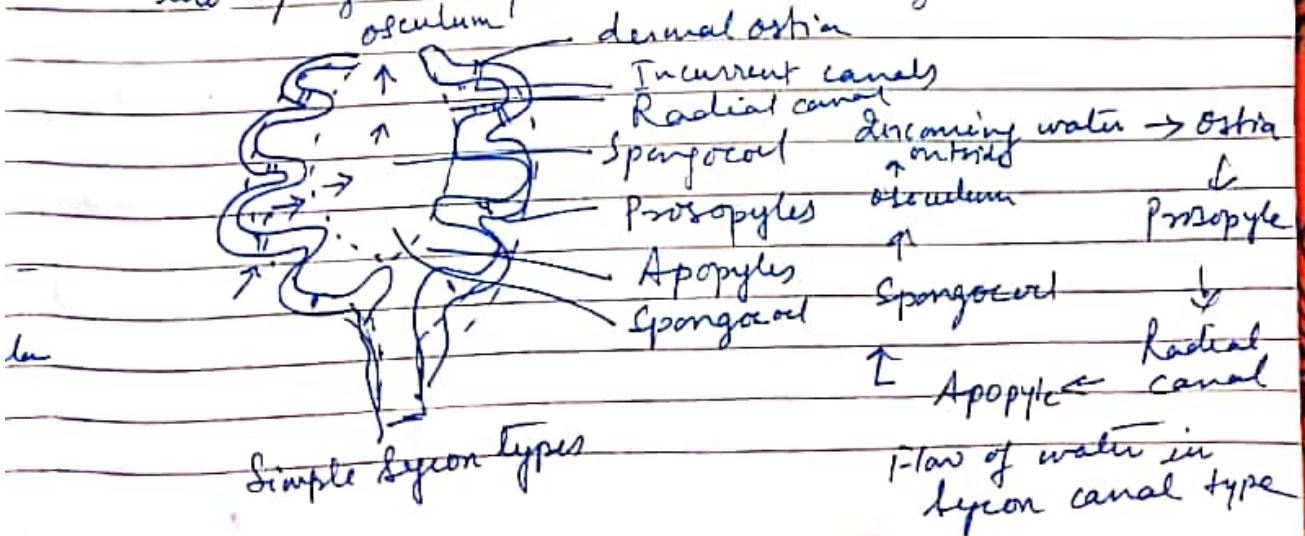 osculum
dermal ostia
Incurrent canals
Radial canal
Spongocoel
Prosopyles
Apopyles
Spongocoel
Incoming water → Ostia
↓
Prosopyle
↓
Radial
canal
Apopyle ←
↑
Spongocoel
↑
osculum
↑
outside
Simple Sycon types
Flow of water in
Sycon canal type